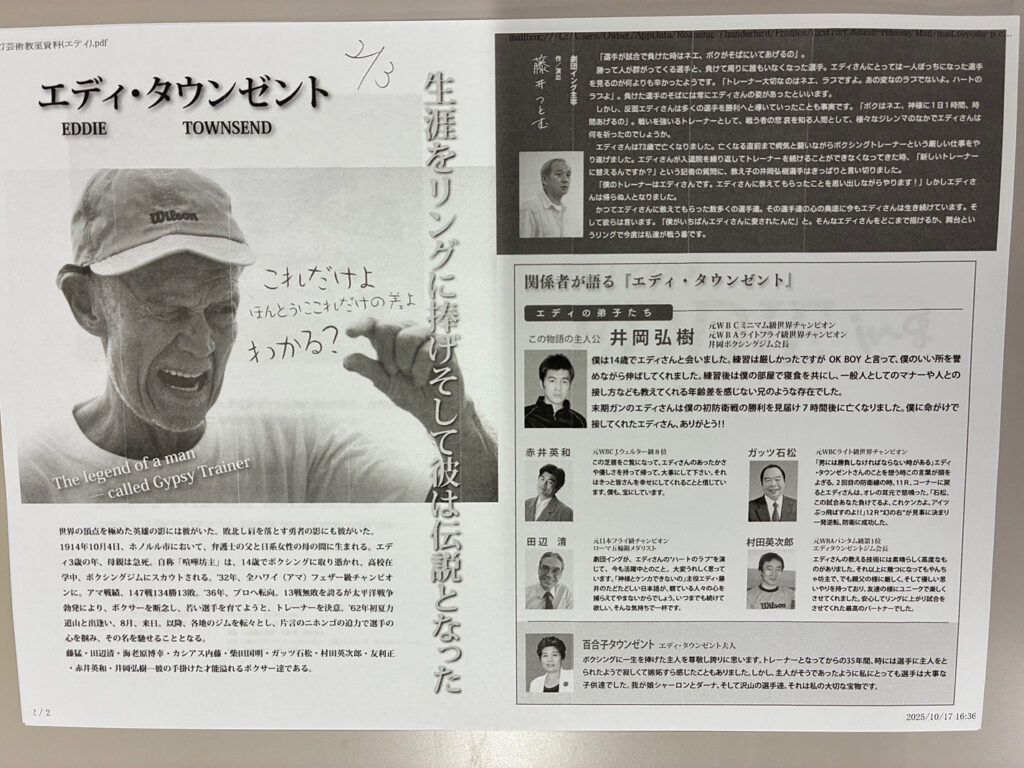 27芸術教室資料(エディ).pdf
2/3
エディ・タウンゼント
EDDIE TOWNSEND
Wilson
これだけよ
ほんとうにこれだけの差よ
わかる?
The legend of a man
— called Gypsy Trainer
生涯をリングに捧げそして彼は伝説となった
世界の頂点を極めた英雄の影には彼がいた。敗北し肩を落とす勇者の影にも彼がいた。
1914年10月4日、ホノルル市において、弁護士の父と日系女性の母の間に生まれる。エデ
ィ3歳の年、母親は急死。自称「喧嘩坊主」は、14歳でボクシングに取り憑かれ、高校在
学中、ボクシングジムにスカウトされる。'32年、全ハワイ(アマ)フェザー級チャンピオ
ンに。アマ戦績、147戦134勝13敗。'36年、プロへ転向。13戦無敗を誇るが太平洋戦争
勃発により、ボクサーを断念し、若い選手を育てようと、トレーナーを決意。'62年初夏力
道山と出逢い、8月、来日。以降、各地のジムを転々とし、片言のニホンゴの迫力で選手の
心を掴み、その名を馳せることとなる。
藤猛・田辺清・海老原博幸・カシアス内藤・柴田国明・ガッツ石松・村田英次郎・友利正
・赤井英和・井岡弘樹―彼の手掛けた才能溢れるボクサー達である。
2 / 2
劇団イング主宰
作/演出
藤井つとむ
「選手が試合で負けた時はネエ、ボクがそばにいてあげるの」。
勝って人が群がってくる選手と、負けて周りに誰もいなくなった選手。エディさんにとっては一人ぼっちになった選手
を見るのが何よりも辛かったようです。「トレーナー大切なのはネエ、ラブですよ。あの変なのラブでないよ。ハートの
ラブよ」。負けた選手のそばには常にエディさんの姿があったといいます。
しかし、反面エディさんは多くの選手を勝利へと導いていったことも事実です。「ボクはネエ、神様に1日1時間、時
間あげるの」。戦いを強いるトレーナーとして、戦う者の悲哀を知る人間として、様々なジレンマのなかでエディさんは
何を祈ったのでしょうか。
エディさんは73歳で亡くなりました。亡くなる直前まで病気と闘いながらボクシングトレーナーという厳しい仕事をや
り遂げました。エディさんが入退院を繰り返してトレーナーを続けることができなくなってきた時、「新しいトレーナー
に替えるんですか?」という記者の質問に、教え子の井岡弘樹選手はきっぱりと言い切りました。
「僕のトレーナーはエディさんです。エディさんに教えてもらったことを思い出しながらやります!」しかしエディさ
んは帰らぬ人となりました。
かつてエディさんに教えてもらった数多くの選手達。その選手達の心の奥底に今もエディさんは生き続けています。そ
して彼らは言います。「僕がいちばんエディさんに愛されたんだ」と。そんなエディさんをどこまで描けるか、舞台とい
うリングで今度は私達が戦う番です。
関係者が語る『エディ・タウンゼント』
エディの弟子たち
この物語の主人公 井岡弘樹
元WBCミニマム級世界チャンピオン
元WBAライトフライ級世界チャンピオン
井岡ボクシングジム会長
僕は14歳でエディさんと会いました。練習は厳しかったですが OK BOY と言って、僕のいい所を誉
めながら伸ばしてくれました。練習後は僕の部屋で寝食を共にし、一般人としてのマナーや人との
接し方なども教えてくれる年齢差を感じない兄のような存在でした。
末期ガンのエディさんは僕の初防衛戦の勝利を見届け7時間後に亡くなりました。僕に命がけで
接してくれたエディさん、ありがとう!!
赤井英和
元WBC J.ウェルター級8位
この芝居をご覧になって、エディさんのあったかさ
や優しさを持って帰って、大事にして下さい。それ
はきっと皆さんを幸せにしてくれることと信じていま
す。僕も、宝にしています。
ガッツ石松
元WBCライト級世界チャンピオン
「男には勝負しなければならない時がある」エディ
・タウンゼントさんのことを想う時この言葉が頭を
よぎる。2回目の防衛線の時、11R、コーナーに戻
るとエディさんは、オレの耳元で怒鳴った。「石松、
この試合あなた負けてるよ、これケンカよ、アイツ
ぶっ飛ばすのよ!!」12R“幻の右”が見事に決まり
一発逆転、防衛に成功した。
田辺 清
元日本フライ級チャンピオン
ローマ五輪銅メダリスト
劇団イングが、エディさんの“ハートのラブ”を演じ
て、今も活躍中とのこと。大変うれしく思っていま
す。「神様とケンカできないの」主役エディ・藤
井のたどたどしい日本語が、観ている人々の心を
捕らえてやまないからでしょう。いつまでも続けて
欲しい。そんな気持ちで一杯です。
村田英次郎
元WBAバンタム級第1位
エディタウンゼントジム会長
エディさんの教える技術には素晴らしく高度なも
のがありました。それ以上に幾つになってもやんち
ゃ坊主で、でも親父の様に厳しく、そして優しい思
いやりを持っており、友達の様にユニークで楽しく
させてくれました。安心してリングに上がり試合を
させてくれた最高のパートナーでした。
百合子タウンゼント エディ・タウンゼント夫人
ボクシングに一生を捧げた主人を尊敬し誇りに思います。トレーナーとなってからの35年間、時には選手に主人をと
られたようで寂しくて嫉妬すら感じたこともありました。しかし、主人がそうであったように私にとっても選手は大事な
子供達でした。我が娘シャーロンとダーナ、そして沢山の選手達。それは私の大切な宝物です。
2025/10/17 16:36